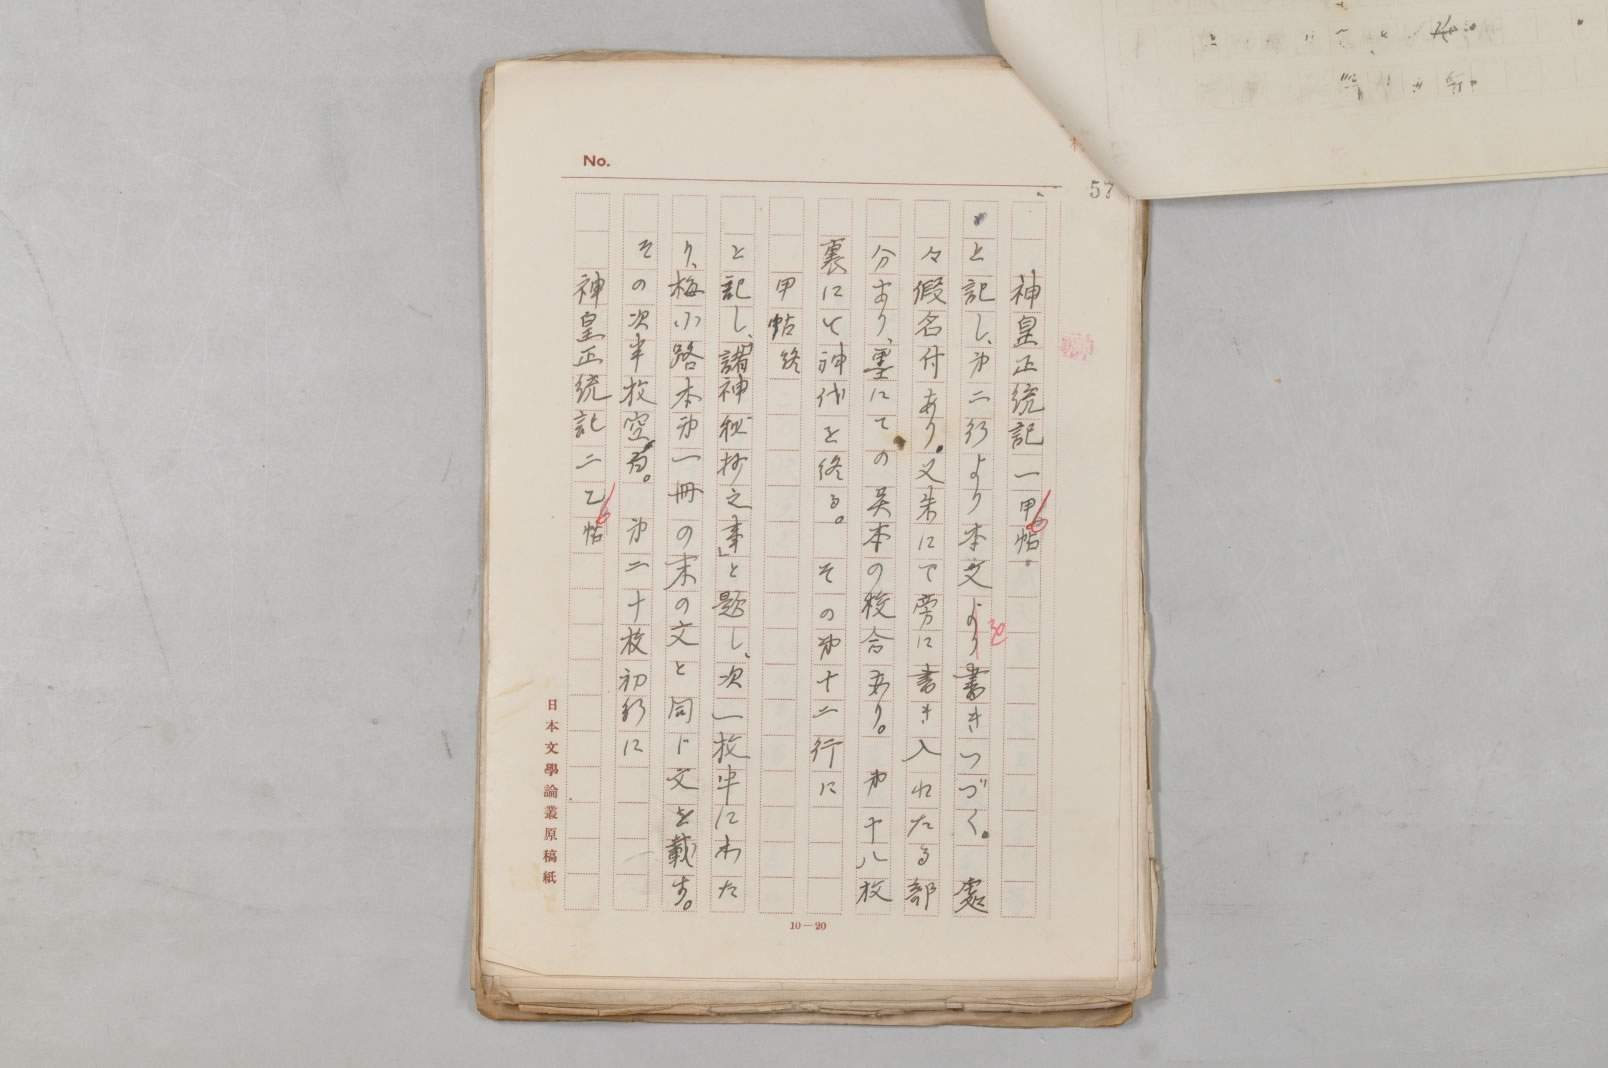 No.
57
神皇正統記一甲帖
と記し、才二行より本文より書きつづく。處
を
々假名付あり。又朱にて旁に書き入れたる部
分あり、墨にての異本の校合あり。才十八枚
裏にて神代を終る。その才十二行に
甲帖終
と記し、「諸神秘抄之事」と題し、次一枚半にわた
り、梅小路本才一冊の末の文と同じ文を載す。
その次半枚空白。才二十枚初行に
神皇正統記二乙帖
日本文學論叢原稿紙
10—20